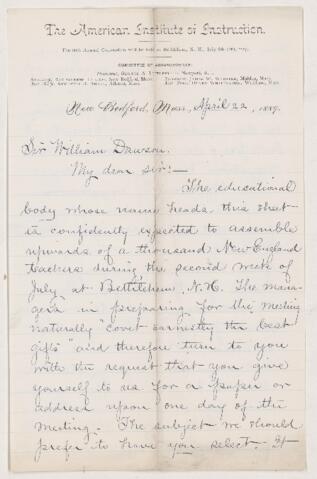 The American Institute of Instruction.
COMMITTEE OF ARRANGEMENTS:
New Bedford, Mass., April 22, 1889.
Sir William Dawson,
My dear sir:—
The educational
body whose name heads this sheet
is confidently expected to assemble
upwards of a thousand New England
teachers during the second week of
July, at Bethlehem, N.H. The mana-
gers in preparing for the meeting
naturally "covet earnestly the best
gifts" and therefore turn to you
with the request that you give
yourself to us for a paper or
address upon one day of the
meeting. The subject we should
prefer to have you select. It